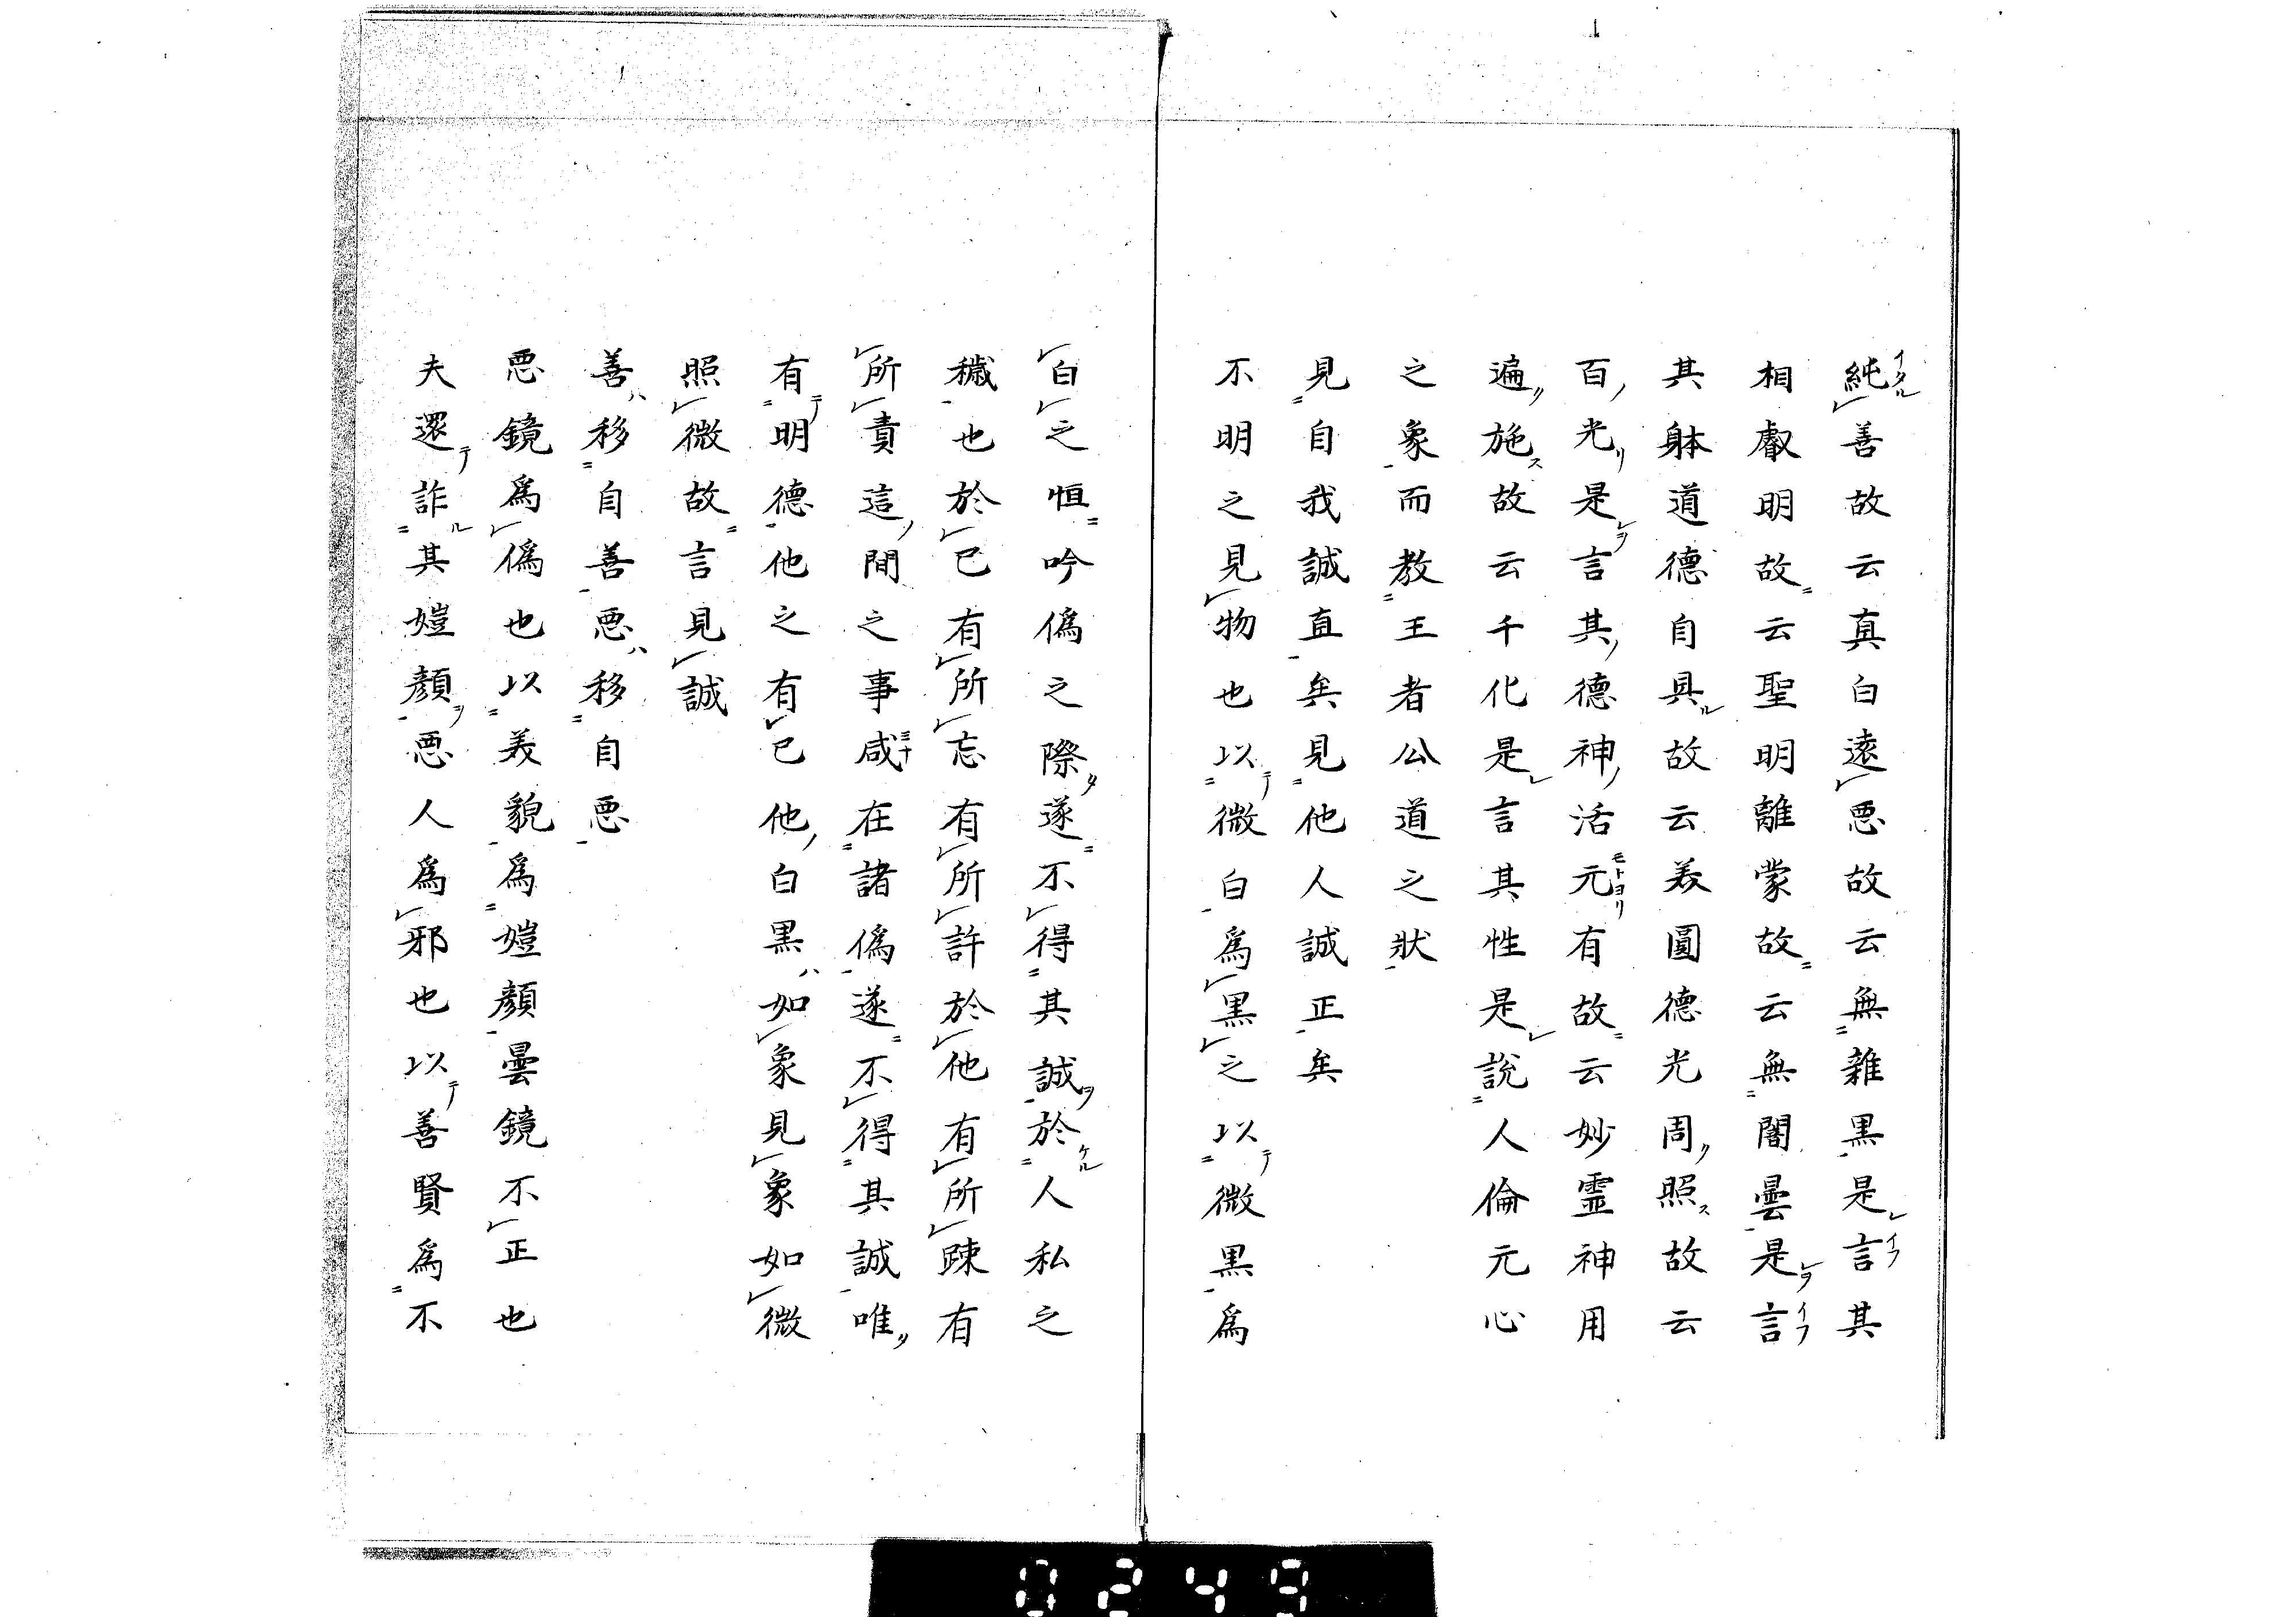 純善故云真白遠悪故云無雜黒是言其
相叡明故云聖明離蒙故云無闇曇是言
其躰道德自具故云美圓德光周照故云
百光是言其德神活元有故云妙霊神用
遍施故云千化是言其性是說人倫元心
之象而教王者公道之狀
見自我誠直矣見他人誠正矣
不明之見物也以微白為黒之以微黒為
白之恒吟偽之際遂不得其誠於人私之
穢也於已有所忘有所許於他有所踈有
所責這間之事咸在諸偽遂不得其誠唯
有明德他之有已他白黒如象見象如微
照微故言見誠
善移自善悪移自悪
悪鏡為偽也以美貌為嬁顔曇鏡不正也
夫還詐其嬁顔悪人為邪也以善賢為不
0249